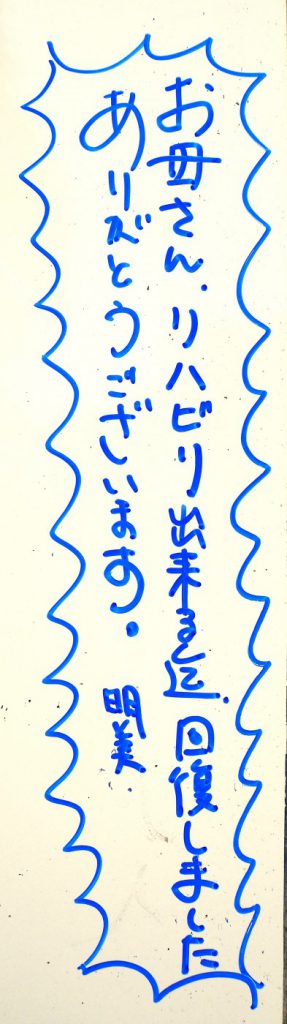 お母さん、リハビリ出来る迄、回復しました
ありがとうございます。 明美.